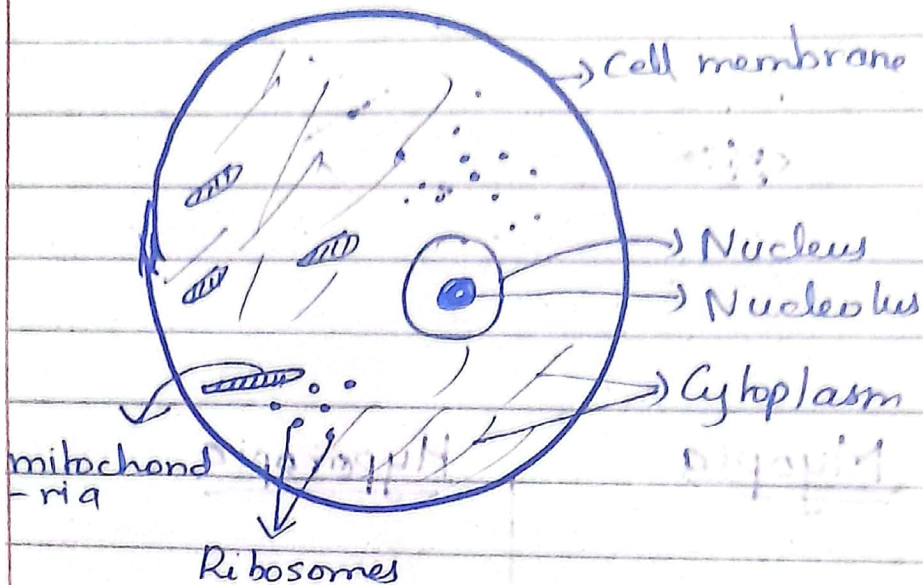 Cell membrane
Nucleus
Nucleolus
Cytoplasm
mitochond
-ria
Ribosomes